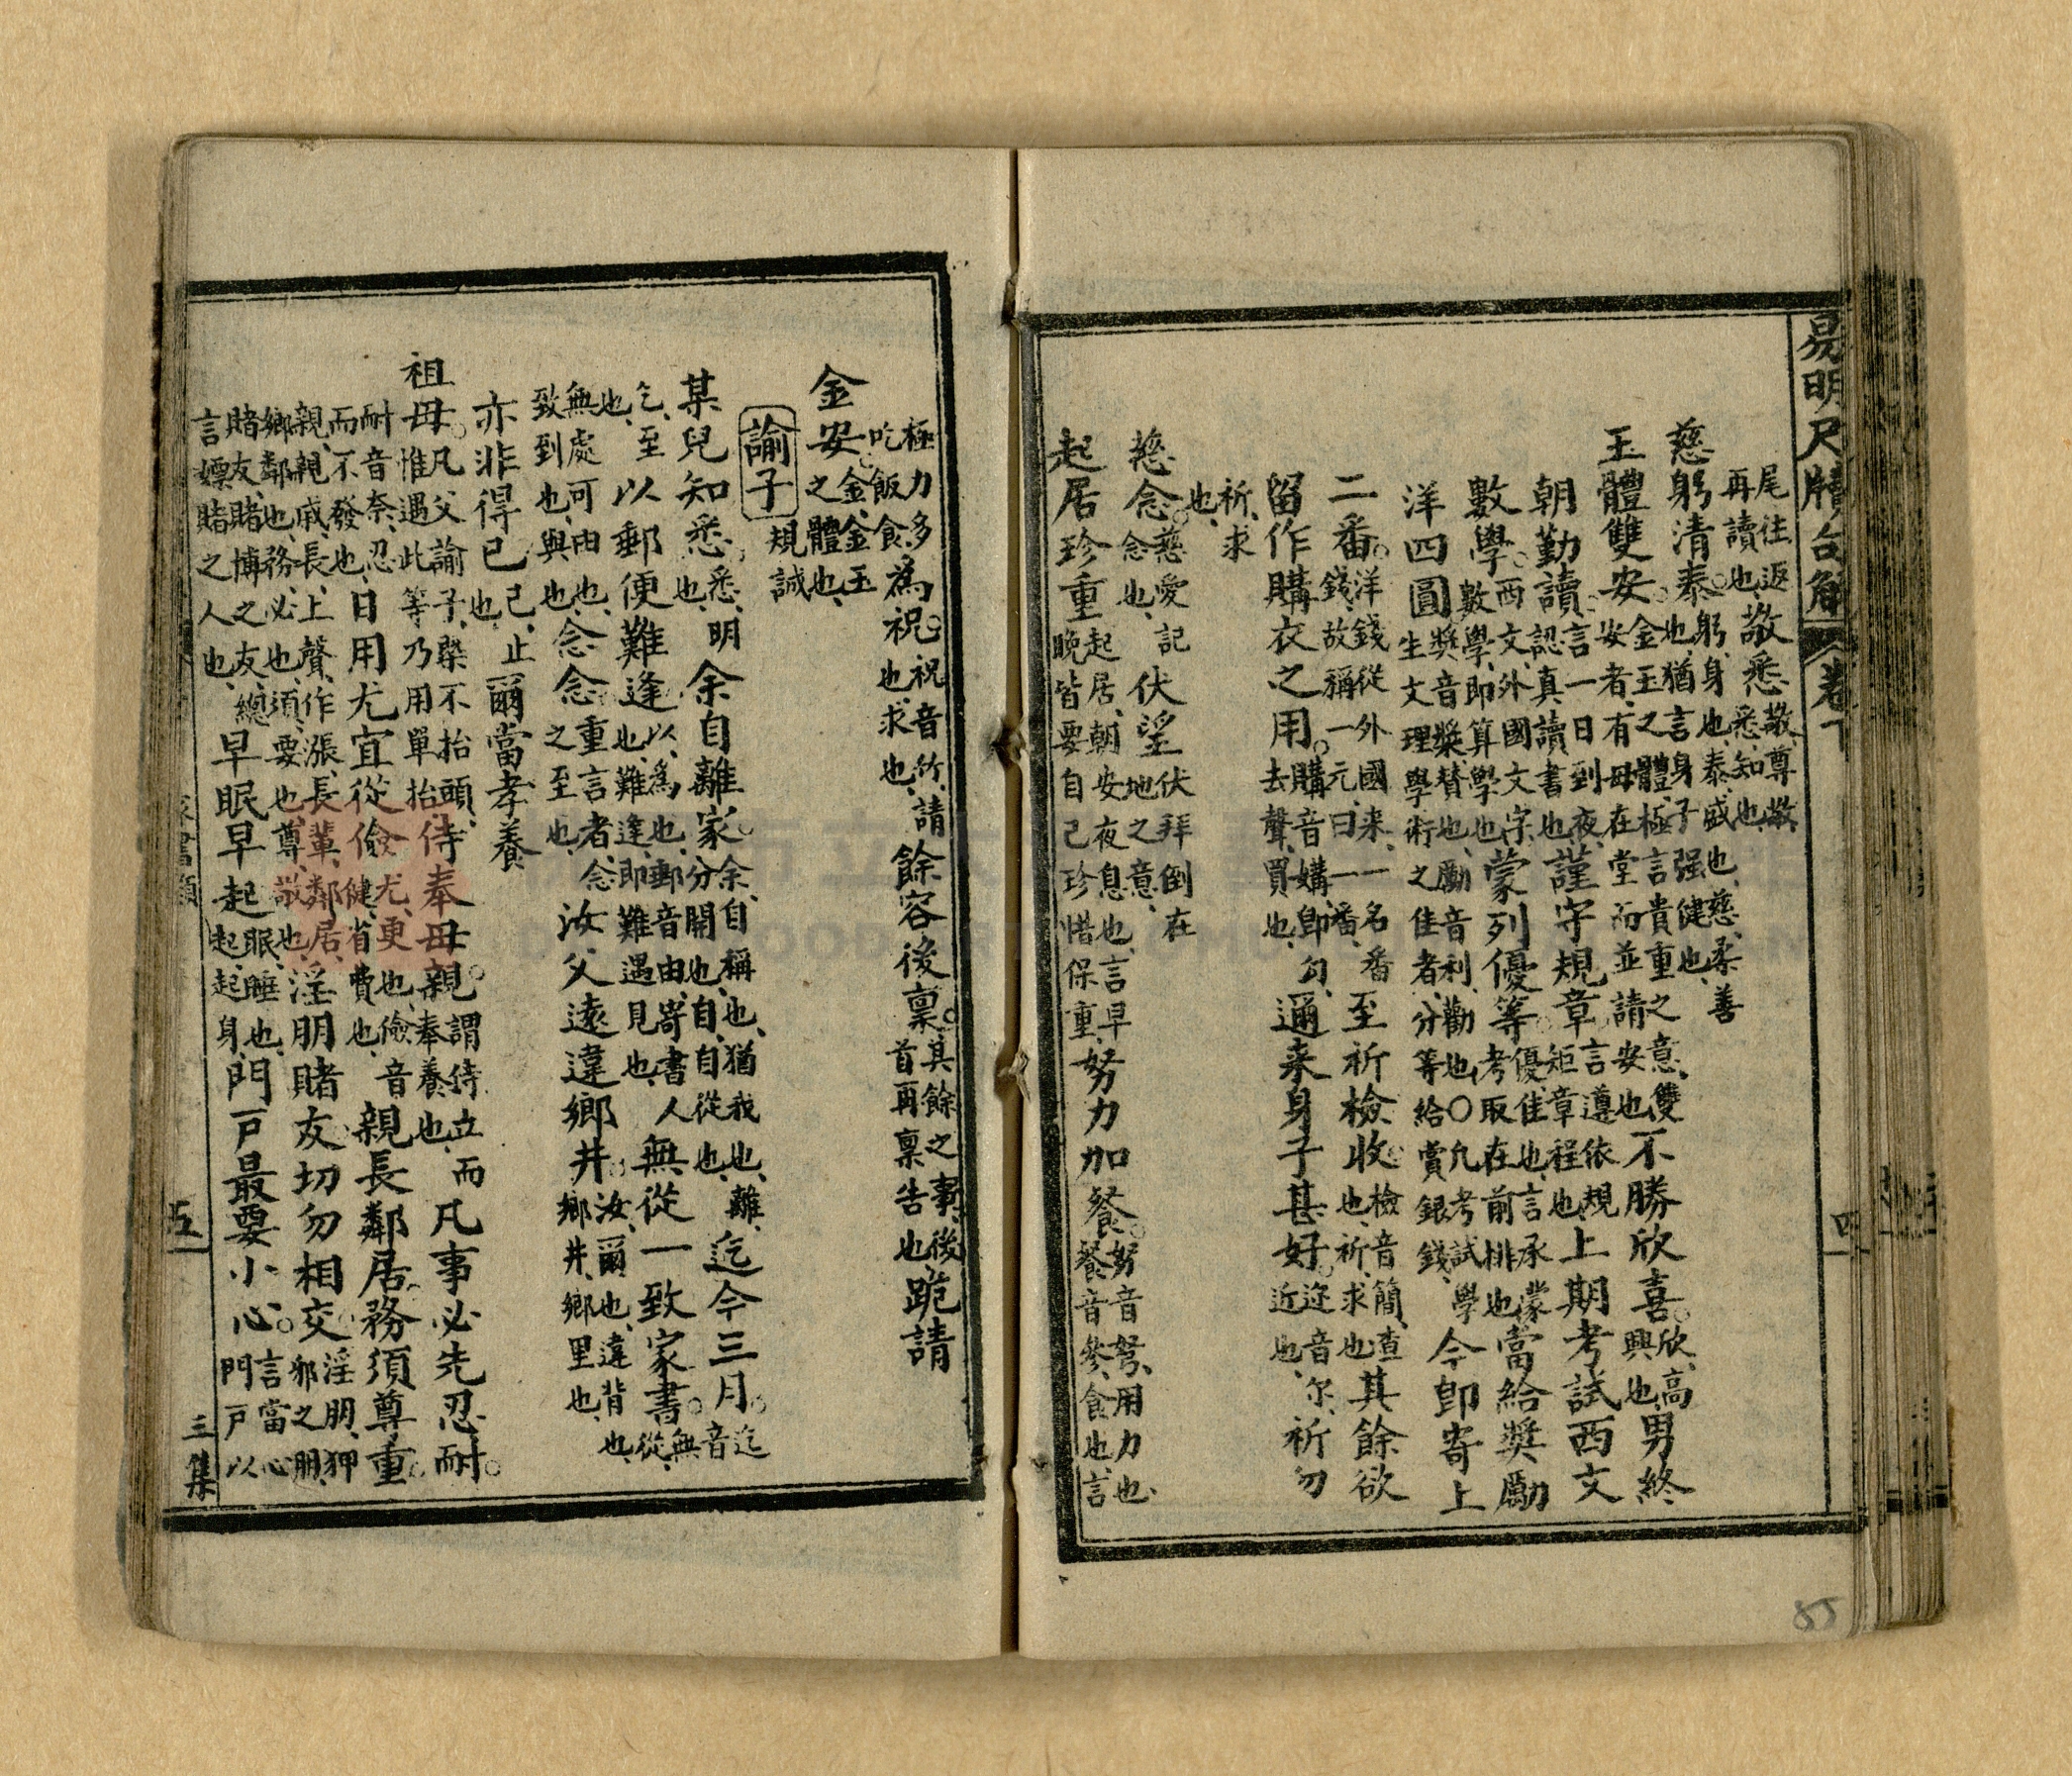 易明尺牘句解 卷下 四
尾往返再讀也、敬悉敬、尊敬也、悉、知也、
慈躬清泰。躬、身也、泰、盛也、慈、柔善也、猶言身子强健也、
玉體雙安。金玉之體、極言貴重之意、雙安者、有母在堂而並請安也、不勝欣喜。欣、高興也、男終
朝勤讀。言一日到夜、認真讀書也、謹守規章言遵依規矩章程也、上期考試西文
數學。西文、外國文字、數學、即算學也、蒙列優等。優、佳也、言承蒙考取在前排也、當給獎勵
洋四圓獎音槳、賛也、勵音利、勸也、〇凡考試學生文理學術之佳者、分等給賞銀錢、今卽寄上
二番。洋錢從外國来、一名番錢、故稱一元曰一番、至祈檢收。檢音簡、查也、祈、求也、其餘欲
留作購衣之用。購音媾、買也、去聲、卽勾、邇来身子甚好。迩音尔、近也、祈勿
祈、求也、
慈念。慈愛記念也、伏望伏拜倒在地之意、
起居珍重起居、朝安夜息也、言早晚皆要自己珍惜保重、努力加餐。努音弩、用力也、餐音參、食也、言
極力多吃飯食、為祝。祝音竹、請也、求也、餘容後稟。其餘之事、後首再稟告也、跪請
金安。金、金玉之體也、
諭子 規誡
某兒知悉、悉、明也、余自離家。余、自稱也、猶我也、離、分開也、自、自從也、迄今三月。迄音
乞、至也、以郵便難逢以、為也、郵音由、寄書人也、難逢、即難遇見也、無從一致家書。無從、
無處可由也、致、到也、與也、念念。重言者、念之至也、汝父遠違鄉井。汝、爾也、違、背也、鄉井、鄉里也、
亦非得已已、止也、爾當孝養
祖母。凡父諭子、槩不抬頭、惟遇此等、乃用單抬、侍奉母親。謂侍立而奉養也、凡事必先忍耐。
耐音奈、忍而不發也、日用尤宜從儉尤、更也、儉音健、省費也、親長鄰居。務須尊重。
親、親戚、長、上聲、作漲、長輩、鄰居、鄉鄰也、務、必也、須、要也、尊、敬也、淫朋賭友切勿相交淫朋、狎邪之朋、
賭友、賭博之友、總言嫖賭之人也、早眠早起眠、睡也、起、起身、門戶最要小心。言當心門戶以
家書類 五 三集
85